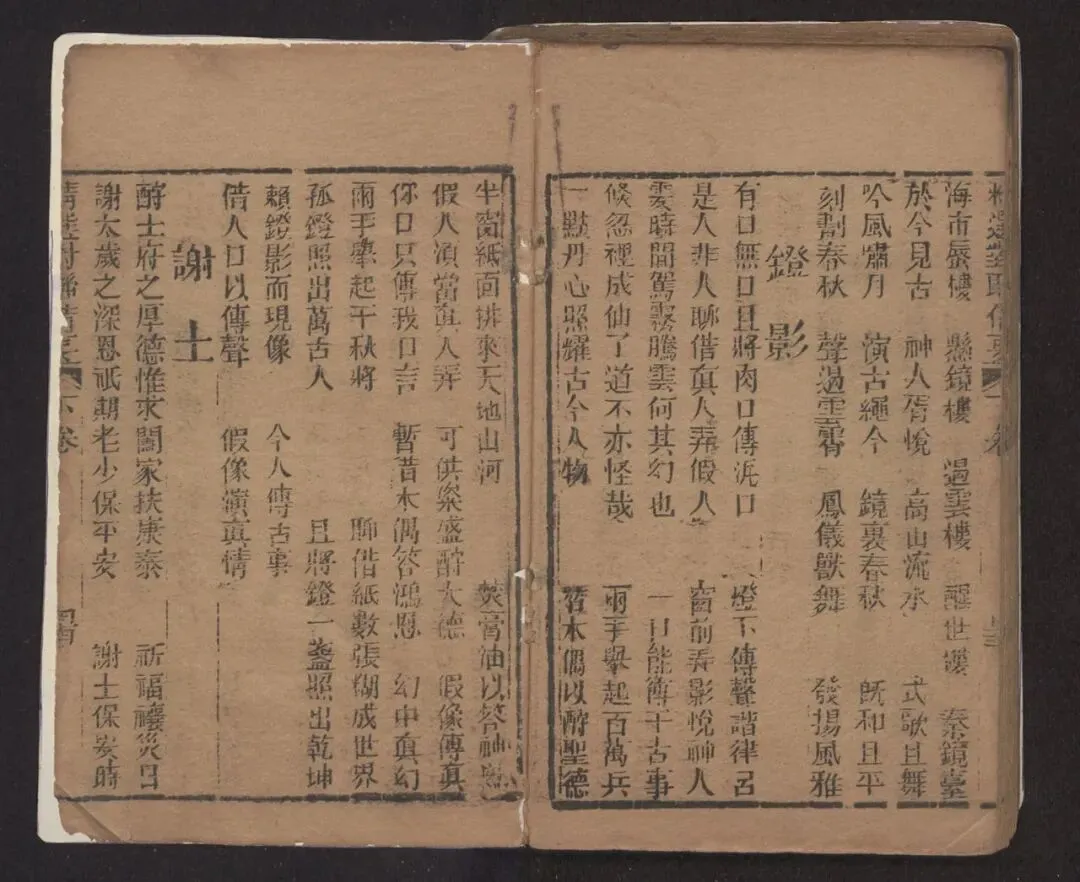 海市蜃樓　懸鏡樓　遏雲樓　醒世鐸　秦鏡臺
於今見古　神人胥悅　高山流水　式歌且舞
吟風嘯月　演古繩今　鏡裏春秋　既和且平
刻劃春秋　聲遏雲霄　鳳儀獸舞　發揚風雅
鐙影
有口無口且將肉口傳泥口　燈下傳聲諧律呂
是人非人聊借真人弄假人　窗前弄影悅神人
霎時間駕霧騰雲何其幻也　一口能傳千古事
倐忽裡成仙了道不亦怪哉　兩手舉起百萬兵
一點丹心照耀古今人物　暫木偶以酧聖德
半窗紙面排來天地山河　焚膏油以答神庥
假人須當真人弄　可供粢盛酧大德　假像傳真
你口只傳我口言　暫昔木偶答鴻恩　幻中真幻
兩手擎起千秋將　聊借紙數張糊成世界
孤鐙照出萬古人　且將鐙一盞照出乾坤
賴鐙影而現像　今人傳古事
借人口以傳聲　假像演真情
謝土
酧土府之厚德惟求闔家扶康泰　祈福禳災日
謝太歲之深恩祇期老少保平安　謝土保安時
下卷